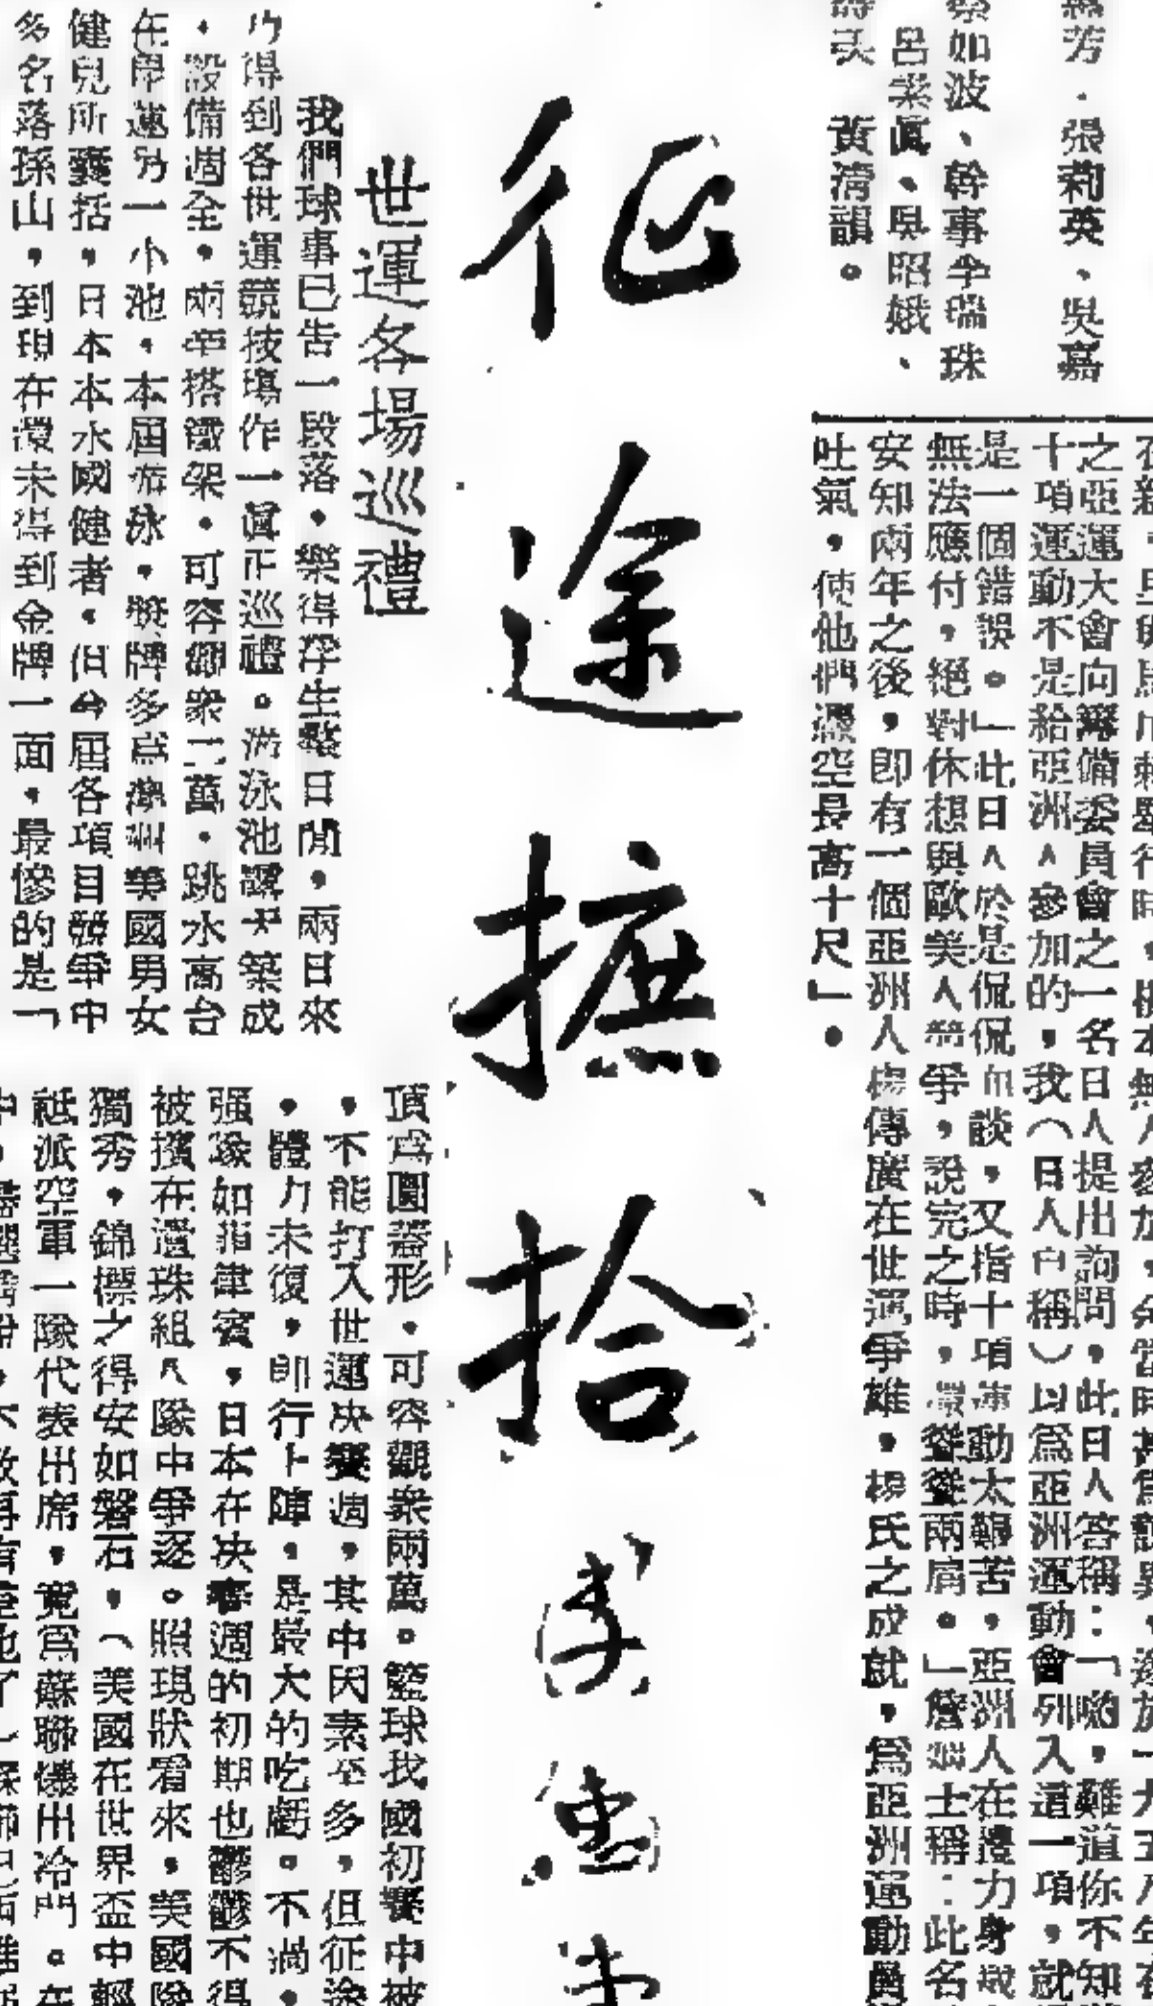 芳．張莉英、吳嘉
如波、幹事李瑞珠
呂業眞、吳昭娥、
黃清韻。
之亞運大會向籌備委員會之一名日人提出詢問，此日人答稱：「喲，難道你不知
十項運動不是給亞洲人參加的，我（日人自稱）以爲亞洲運動會列入這一項，就
是一個錯誤。」此日人於是侃侃而談，又指十項運動太艱苦，亞洲人在體力身
無法應付，絕對休想與歐美人競爭，說完之時，還聳聳兩肩。」詹姆士稱：此名
安知兩年之後，卽有一個亞洲人楊傳廣在世運爭雄，楊氏之成就，爲亞洲運動員
吐氣，使他們憑空長高十尺」。
征途摭拾
世運各場巡禮
我們球事已告一段落，樂得浮生整日閒，兩日來
乃得到各世運競技場作一眞正巡禮。游泳池露天築成
，設備週全，兩旁搭鐵架，可容觀衆二萬，跳水高台
在毘連另一小池，本屆游泳，獎牌多爲澳洲美國男女
健兒所囊括，日本本水國健者，但今屆各項目競爭中
多名落孫山，到現在還未得到金牌一面，最慘的是「
頂爲圓蓋形，可容觀衆兩萬。籃球我國初賽中被
，不能打入世運决賽週，其中因素至多，但征途
，體力未復，卽行上陣，是最大的吃虧。不過，
强隊如菲律賓，日本在决賽週的初期也鬱鬱不得
被擯在遺珠組入隊中爭逐。照現狀看來，美國隊
獨秀，錦標之得安如磐石，（美國在世界盃中輕
祇派空軍一隊代表出席，竟爲蘇聯爆出冷門。在